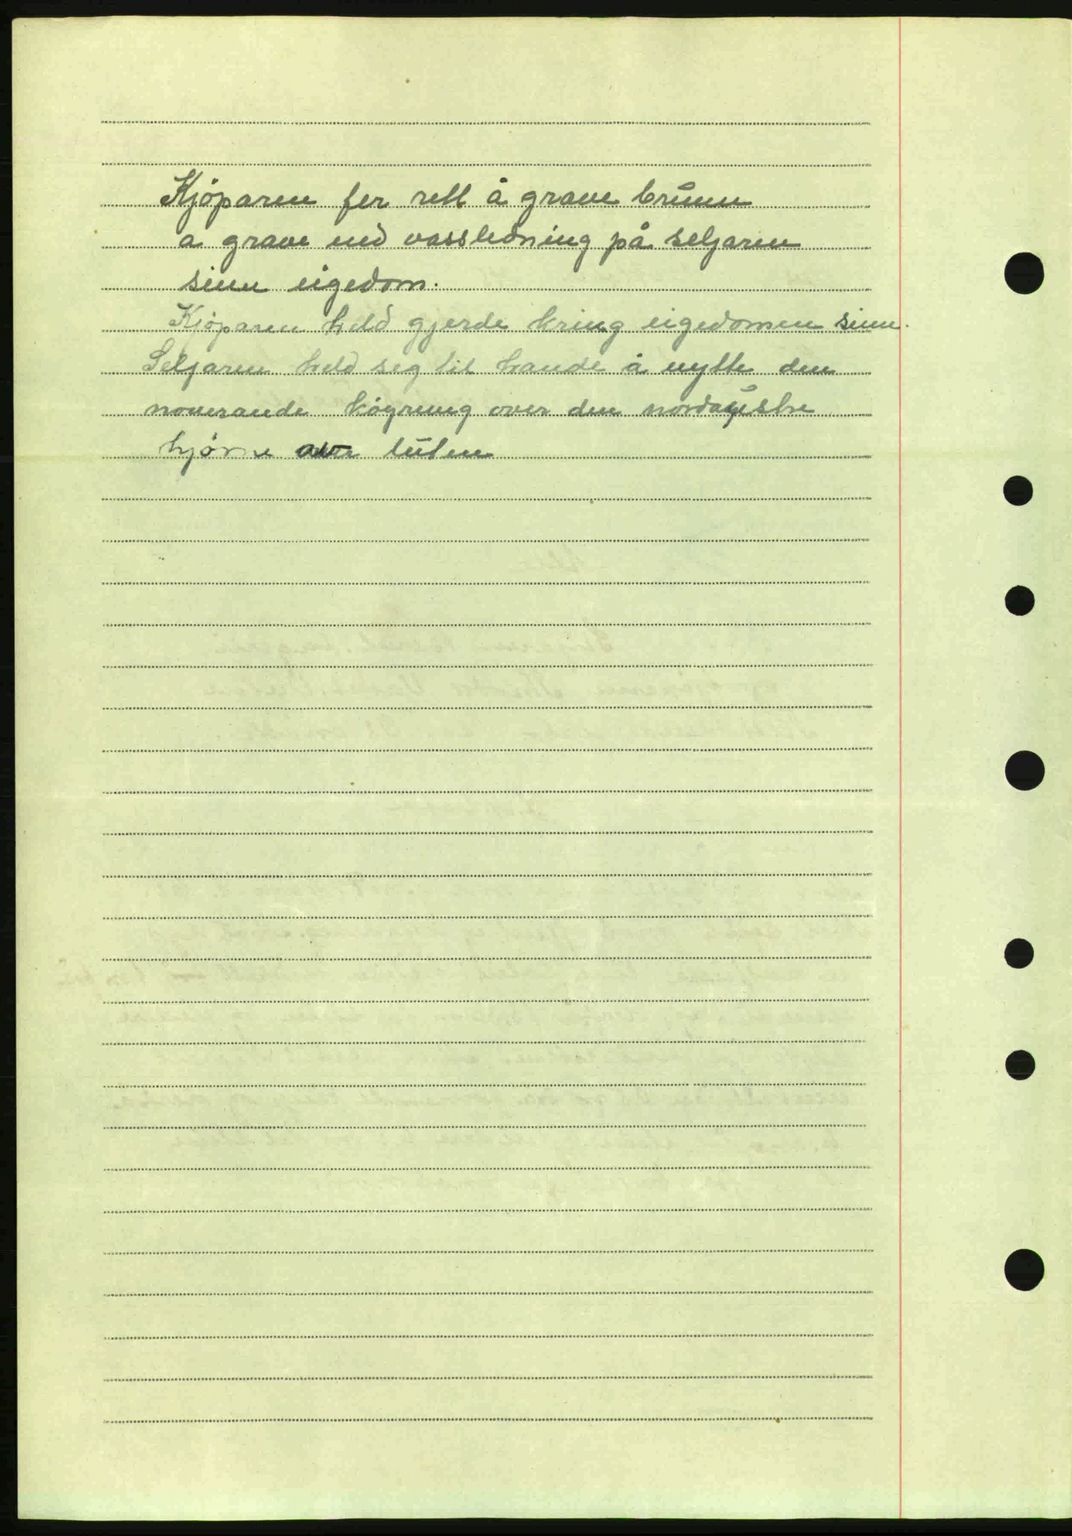 Kjöparen fer rett å grave brunn
a grave ned vassledning på seljaren
sinn eigedom.
Kjöparen held gjerde kring eigedomen sinn.
Seljaren held seg til hande å nytte den
noverande köyrung over den nordaustre
hjørne av luten